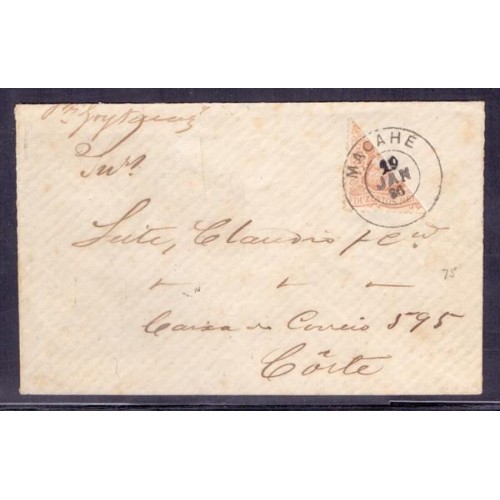 MACAHÉ
19
JAN
86
Leite, Claudio & Cia
Caixa do Correio 595
Côrte
75